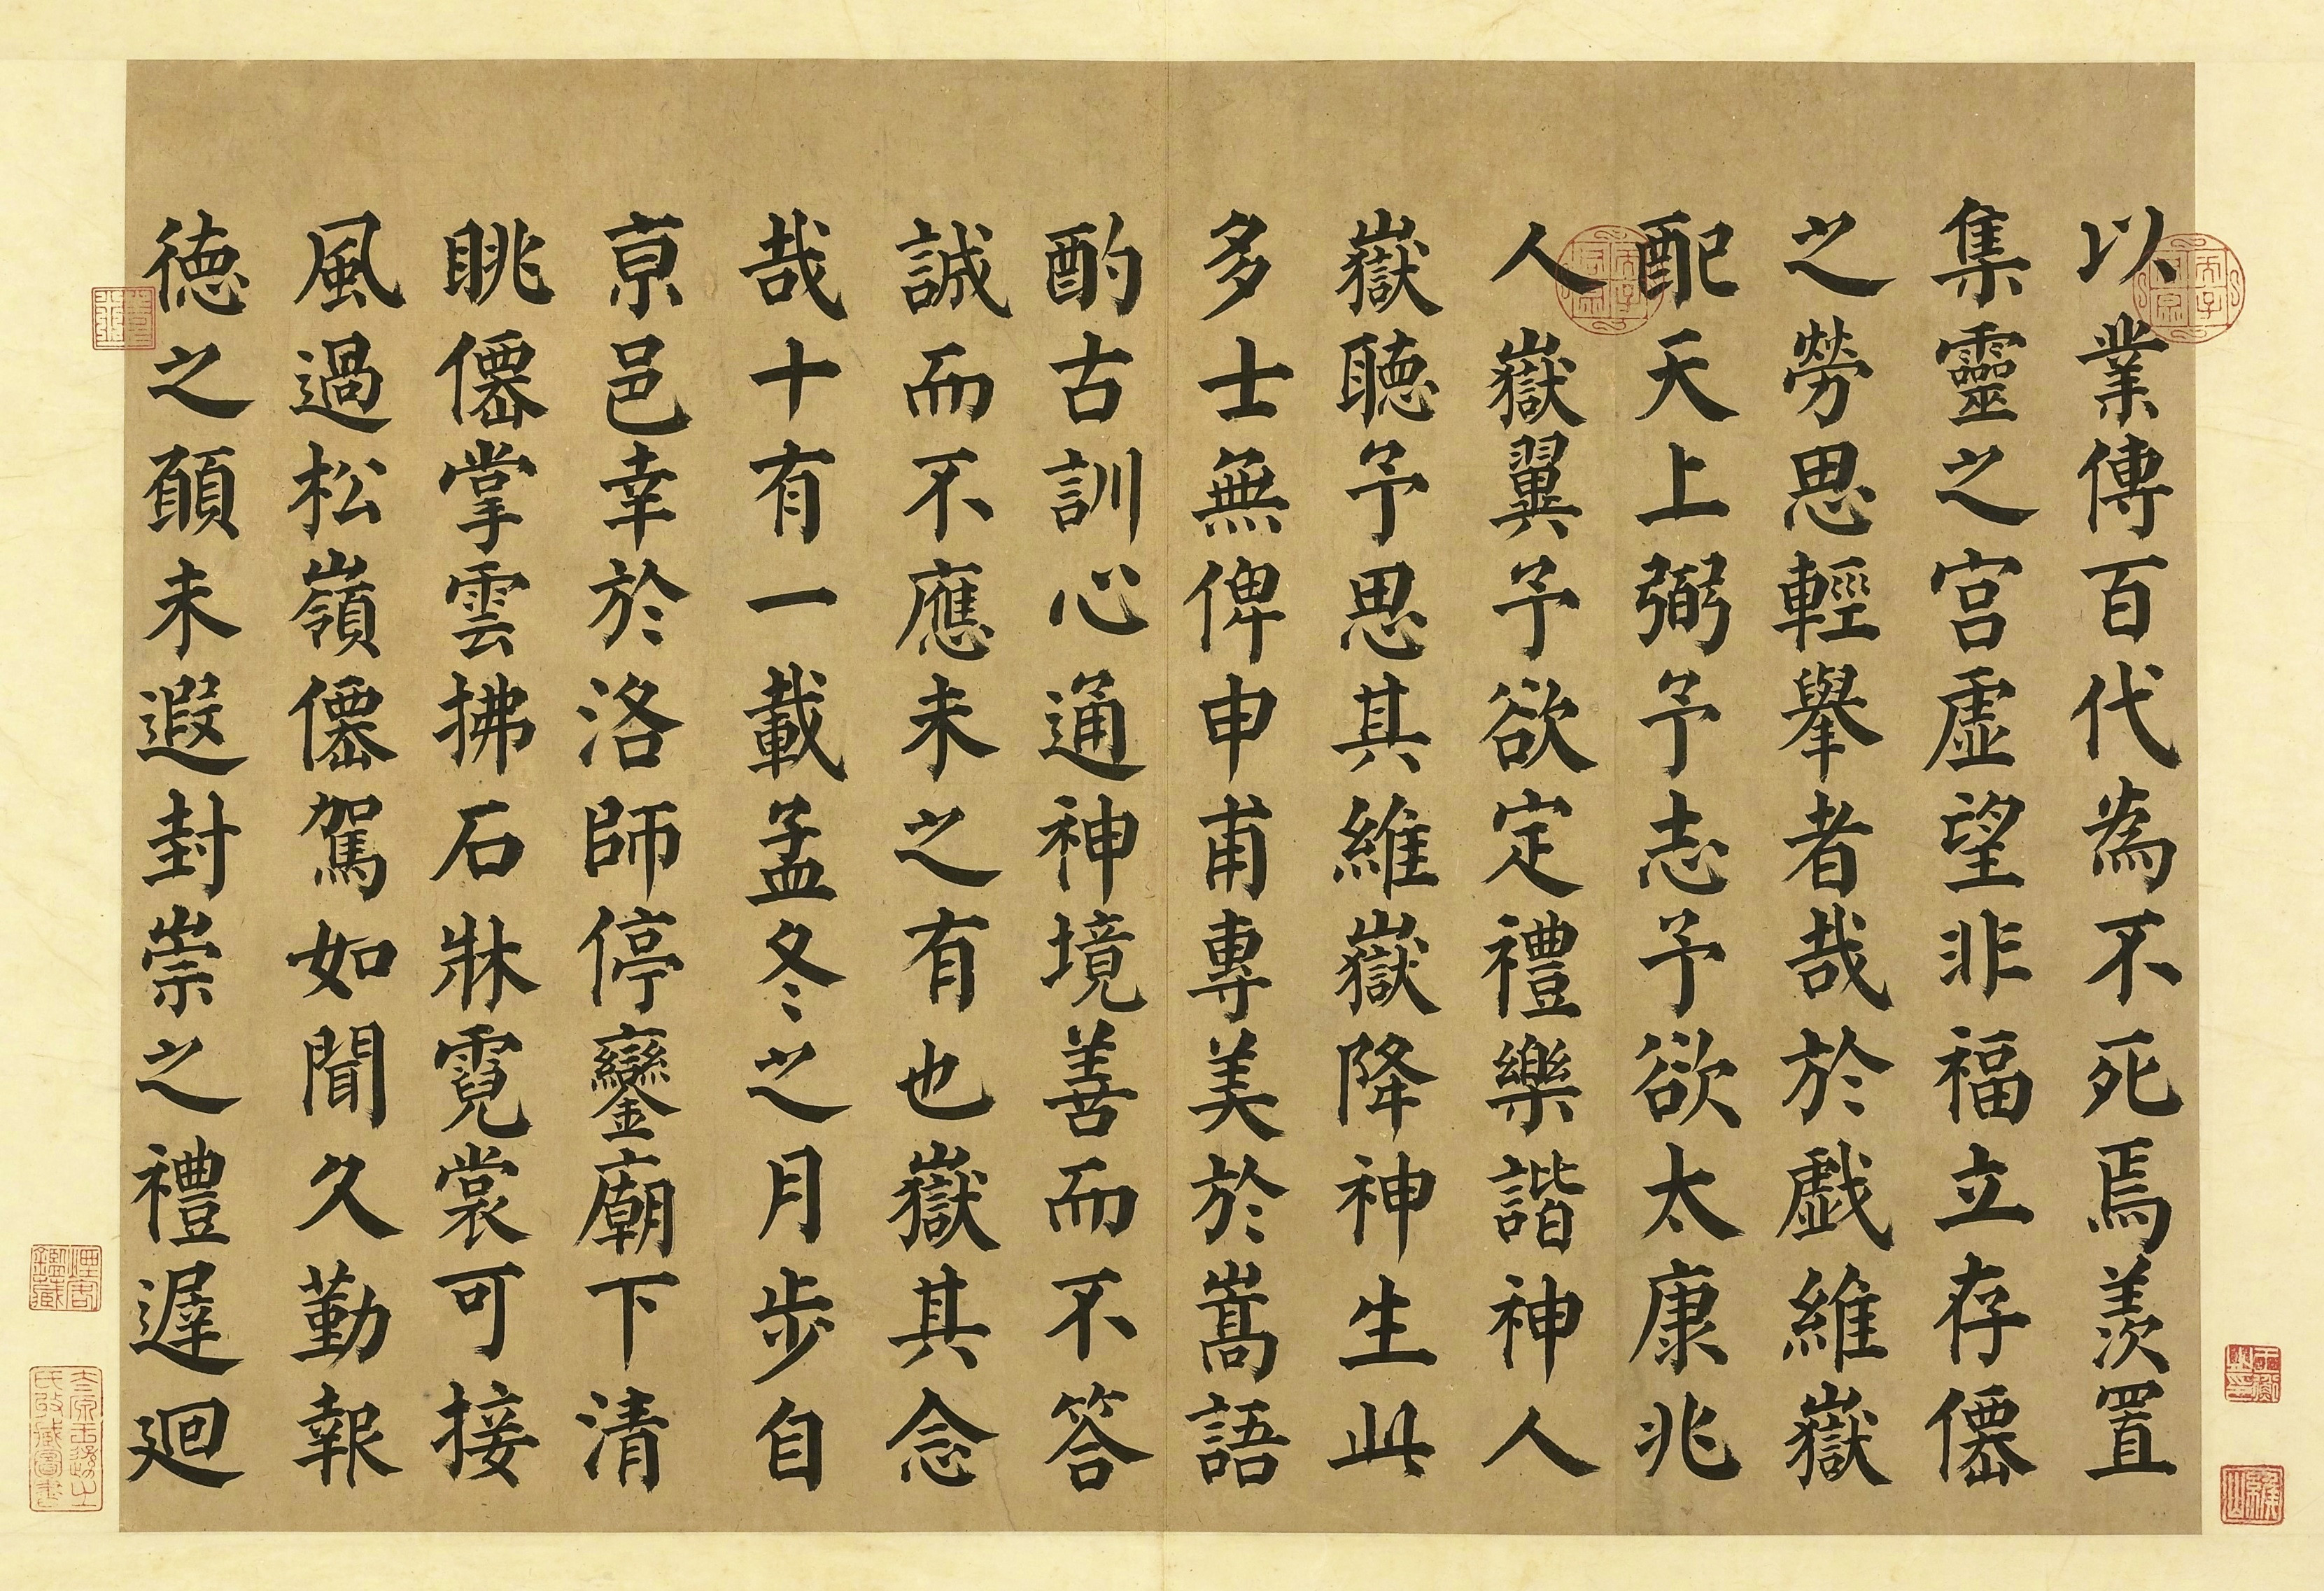 以業傳百代為不死焉羨置
集靈之宮虛望非福立存僊
之勞思輕舉者哉於戲維嶽
配天上弼予志予欲太康兆
人嶽翼予欲定禮樂諧神人
嶽聽予思其維嶽降神生此
多士無俾申甫專美於嵩語
酌古訓心通神境善而不答
誠而不應未之有也嶽其念
哉十有一載孟冬之月步自
亰邑幸於洛師停鑾廟下清
眺僊掌雲拂石牀霓裳可接
風過松嶺僊駕如聞久勤報
徳之願未遐封崇之禮遟迴